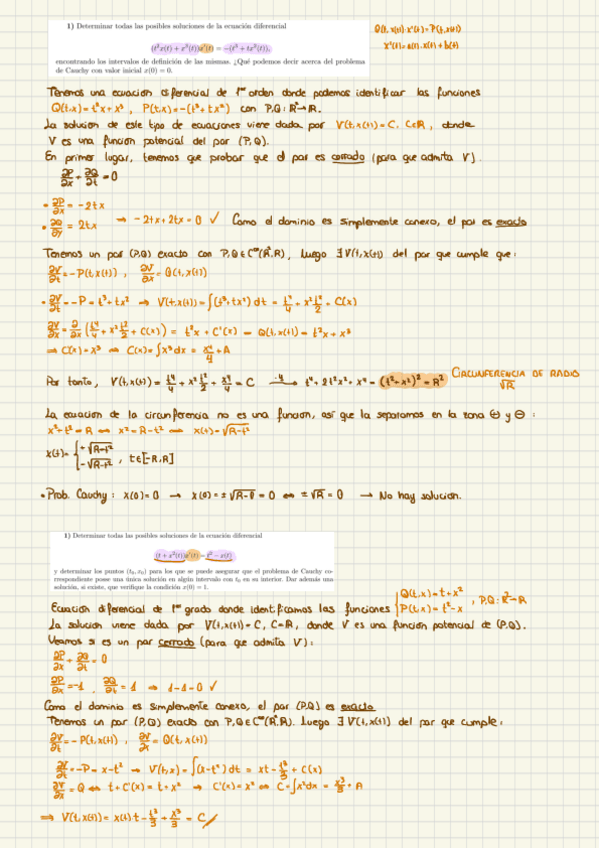 1) Determinar todas las posibles soluciones de la ecuación diferencial
(t²x(t) + x³(t))x'(t) = −(t³ + tx²(t)),
encontrando los intervalos de definición de las mismas. ¿Qué podemos decir acerca del problema
de Cauchy con valor inicial x(0) = 0.
Q(t, x(t))·x'(t) = P(t, x(t))
x'(t) = a(t)·x(t) + b(t)
Tenemos una ecuación diferencial de 1er orden donde podemos identificar las funciones
Q(t,x) = t²x + x³, P(t,x) = -(t³ + tx²) con P,Q: R² → R.
La solución de este tipo de ecuaciones viene dada por V(t, x(t)) = C, C∈R, donde
V es una función potencial del par (P,Q).
En primer lugar, tenemos que probar que el par es cerrado (para que admita V).
∂P/∂x + ∂Q/∂t = 0
• ∂P/∂x = -2tx
• ∂Q/∂t = 2tx → -2tx + 2tx = 0 ✓ Como el dominio es simplemente conexo, el par es exacto
Tenemos un par (P,Q) exacto con P,Q ∈ C^∞(R²,R), luego ∃ V(t, x(t)) del par que cumple que:
∂V/∂t = -P(t, x(t)), ∂V/∂x = Q(t, x(t))
• ∂V/∂t = -P = t³ + tx² → V(t, x(t)) = ∫(t³ + tx²) dt = t⁴/4 + x² t²/2 + C(x)
∂V/∂x = ∂/∂x (t⁴/4 + x² t²/2 + C(x)) = t²x + C'(x) = Q(t, x(t)) = t²x + x³
⇒ C(x) = x³ ⇒ C(x) = ∫x³ dx = x⁴/4 + A
Por tanto, V(t, x(t)) = t⁴/4 + x² t²/2 + x⁴/4 = C —·4→ t⁴ + 2t²x² + x⁴ = (t² + x²)² = R² CIRCUNFERENCIA DE RADIO
√R
La ecuación de la circunferencia no es una función, así que la separamos en la zona ⊕ y ⊖ :
x² + t² = R ⇔ x² = R - t² ⇔ x(t) = √R-t²
x(t) = { +√R-t²
-√R-t² , t∈[-R,R]
• Prob. Cauchy : x(0) = 0 → x(0) = ±√R-0 = 0 ⇔ ±√R = 0 → No hay solución.
1) Determinar todas las posibles soluciones de la ecuación diferencial
(t + x²(t))x'(t) = t² − x(t)
y determinar los puntos (t₀, x₀) para los que se puede asegurar que el problema de Cauchy co-
rrespondiente posee una única solución en algún intervalo con t₀ en su interior. Dar además una
solución, si existe, que verifique la condición x(0) = 1.
Ecuación diferencial de 1er grado donde identificamos las funciones { Q(t,x) = t + x²
P(t,x) = t² - x , P,Q: R² → R
La solución viene dada por V(t, x(t)) = C, C=R, donde V es una función potencial de (P,Q).
Veamos si es un par cerrado (para que admita V) :
∂P/∂x + ∂Q/∂t = 0
∂P/∂x = -1, ∂Q/∂t = 1 ⇒ 1-1 = 0 ✓
Como el dominio es simplemente conexo, el par (P,Q) es exacto
Tenemos un par (P,Q) exacto con P,Q ∈ C^∞(R²,R). Luego ∃ V(t, x(t)) del par que cumple :
∂V/∂t = -P(t, x(t)), ∂V/∂x = Q(t, x(t))
∂V/∂t = -P = x - t² → V(t,x) = ∫(x - t²) dt = xt - t³/3 + C(x)
∂V/∂x = Q ⇔ t + C'(x) = t + x² → C'(x) = x² ⇔ C = ∫x² dx = x³/3 + A
⇒ V(t, x(t)) = x(t) t - t³/3 + x³/3 = C